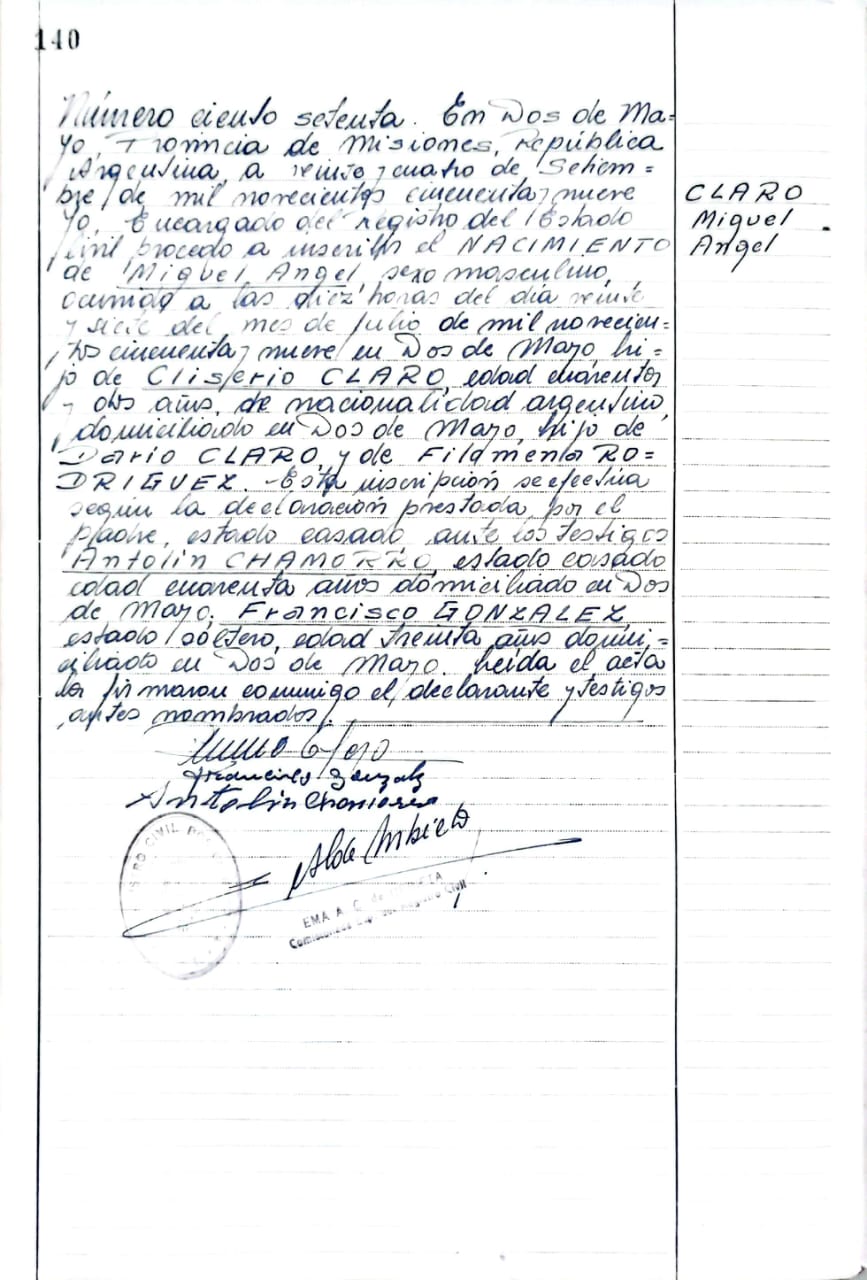 140
Número ciento setenta. En Dos de Ma=
yo, Provincia de Misiones, República
Argentina, a veinte y cuatro de Setiem=
bre de mil novecientos cincuenta y nueve
Yo, Encargado del registro del Estado
Civil procedo a inscribir el NACIMIENTO
de Miguel Angel sexo masculino,
ocurrido a las diez horas del dia veinte
y siete del mes de Julio de mil novecien=
tos cincuenta y nueve en Dos de Mayo, hi=
jo de Cliserio CLARO, edad cuarenta
y dos años, de nacionalidad argentino,
domiciliado en Dos de Mayo, hijo de
Dario CLARO, y de Filamenta RO=
DRIGUEZ.- Esta inscripción se efectua
según la declaración prestada por el
padre, estado casado ante los testigos
Antolin CHAMORRO, estado casado
edad cuarenta años domiciliado en Dos
de Mayo; Francisco GONZALEZ,
estado soltero, edad treinta años domici=
ciliado en Dos de Mayo. Leida el acta
la firmaron conmigo el declarante y testigos
antes nombrados.
CLARO
Miguel
Angel
Francisco Gonzalez
Antolin Chamorro
CIVIL
EMA A. C. de
Registro Civil